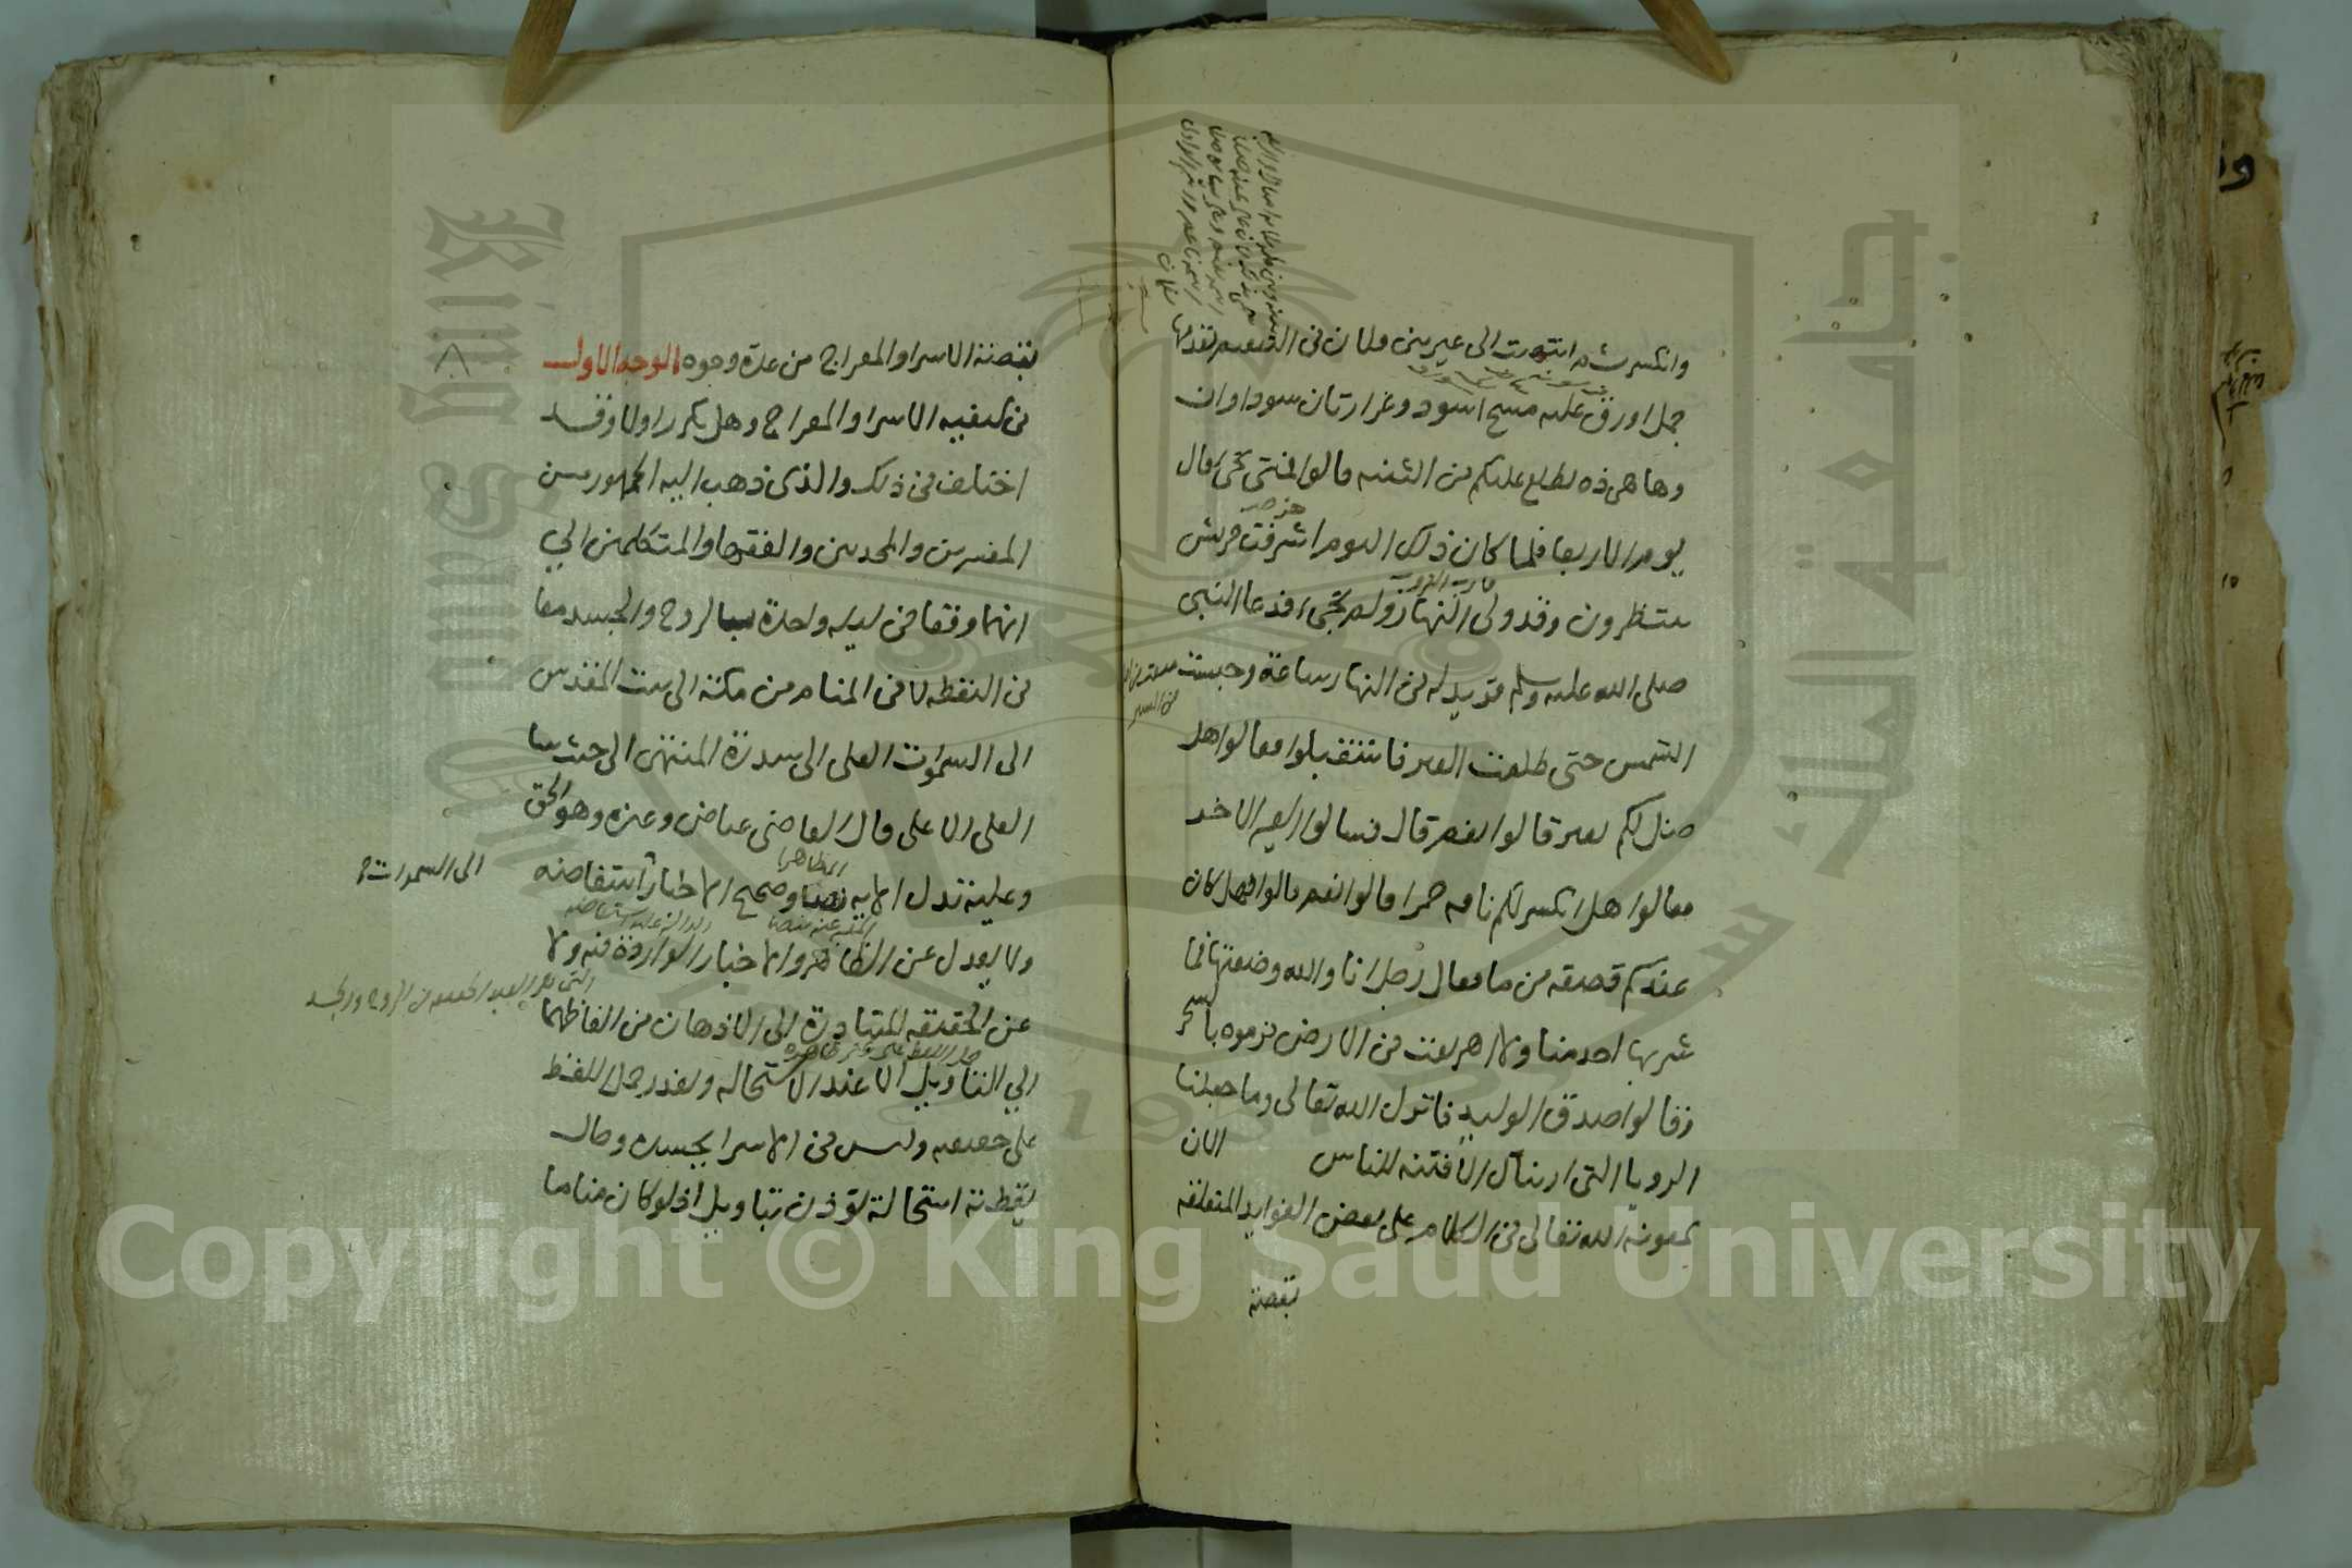 وانكسرت ثم انتهيت الى عير بني فلان في التنعيم تقدمها
جمل اورق عليه مسح اسود وغرارتان سوداوان
وها هي ذه تطلع عليكم من الثنيه قالوا فمتى تجي قال
يوم الاربعا فلما كان ذلك اليوم اشرفت قريش
ينتظرون وقد ولى النهار ولم تجيء فدعا النبي
صلى الله عليه وسلم فزيد له في النهار ساعة وحبست
الشمس حتى طلعت العير فاستقبلوا فقالوا هل
ضل لكم بعير قالوا نعم قال فسالوا العير الاخر
فقالوا هل انكسر لكم ناقه حمرا قالوا نعم قالوا فهل كان
عندكم قصعه من ما فقال رجل انا والله وضعتها فما
شربها احد منا ولا اهريقت في الارض فرموه بالسحر
وقالوا صدق الوليد فانزل الله تعالى وما جعلنا
الرويا التي اريناك الا فتنه للناس الان
بمعونة الله تعالى في الكلام على بعض الفوايد المتعلقه
بقصة
بقصة الاسرا والمعراج من عدة وجوه الوجه الاول
في كيفيه الاسرا والمعراج وهل تكرر اولا وقد
اختلف في ذلك والذي ذهب اليه الجمهور من
المفسرين والمحدثين والفقها والمتكلمين الي
انهما وقعا في ليله واحدة بالروح والجسد معا
في اليقظه لا في المنام من مكة الى بيت المقدس
الى السموات العلى الى سدرة المنتهى الى حيث شا
العلي الاعلى قال القاضي عياض وغيره وهو الحق
وعليه تدل الايه نصا وصحيح الاخبار استفاضه
الى السموات
ولا يعدل عن الظاهر والاخبار الواردة فيه ولا
عن الحقيقه المتبادرة الى الاذهان من الفاظهما
الي التاويل الا عند الاستحاله وتعذر حمل اللفظ
على حقيقته وليس في الاسرا بجسده وحال
يقظته استحالة توذن بتاويل اذ لو كان مناما